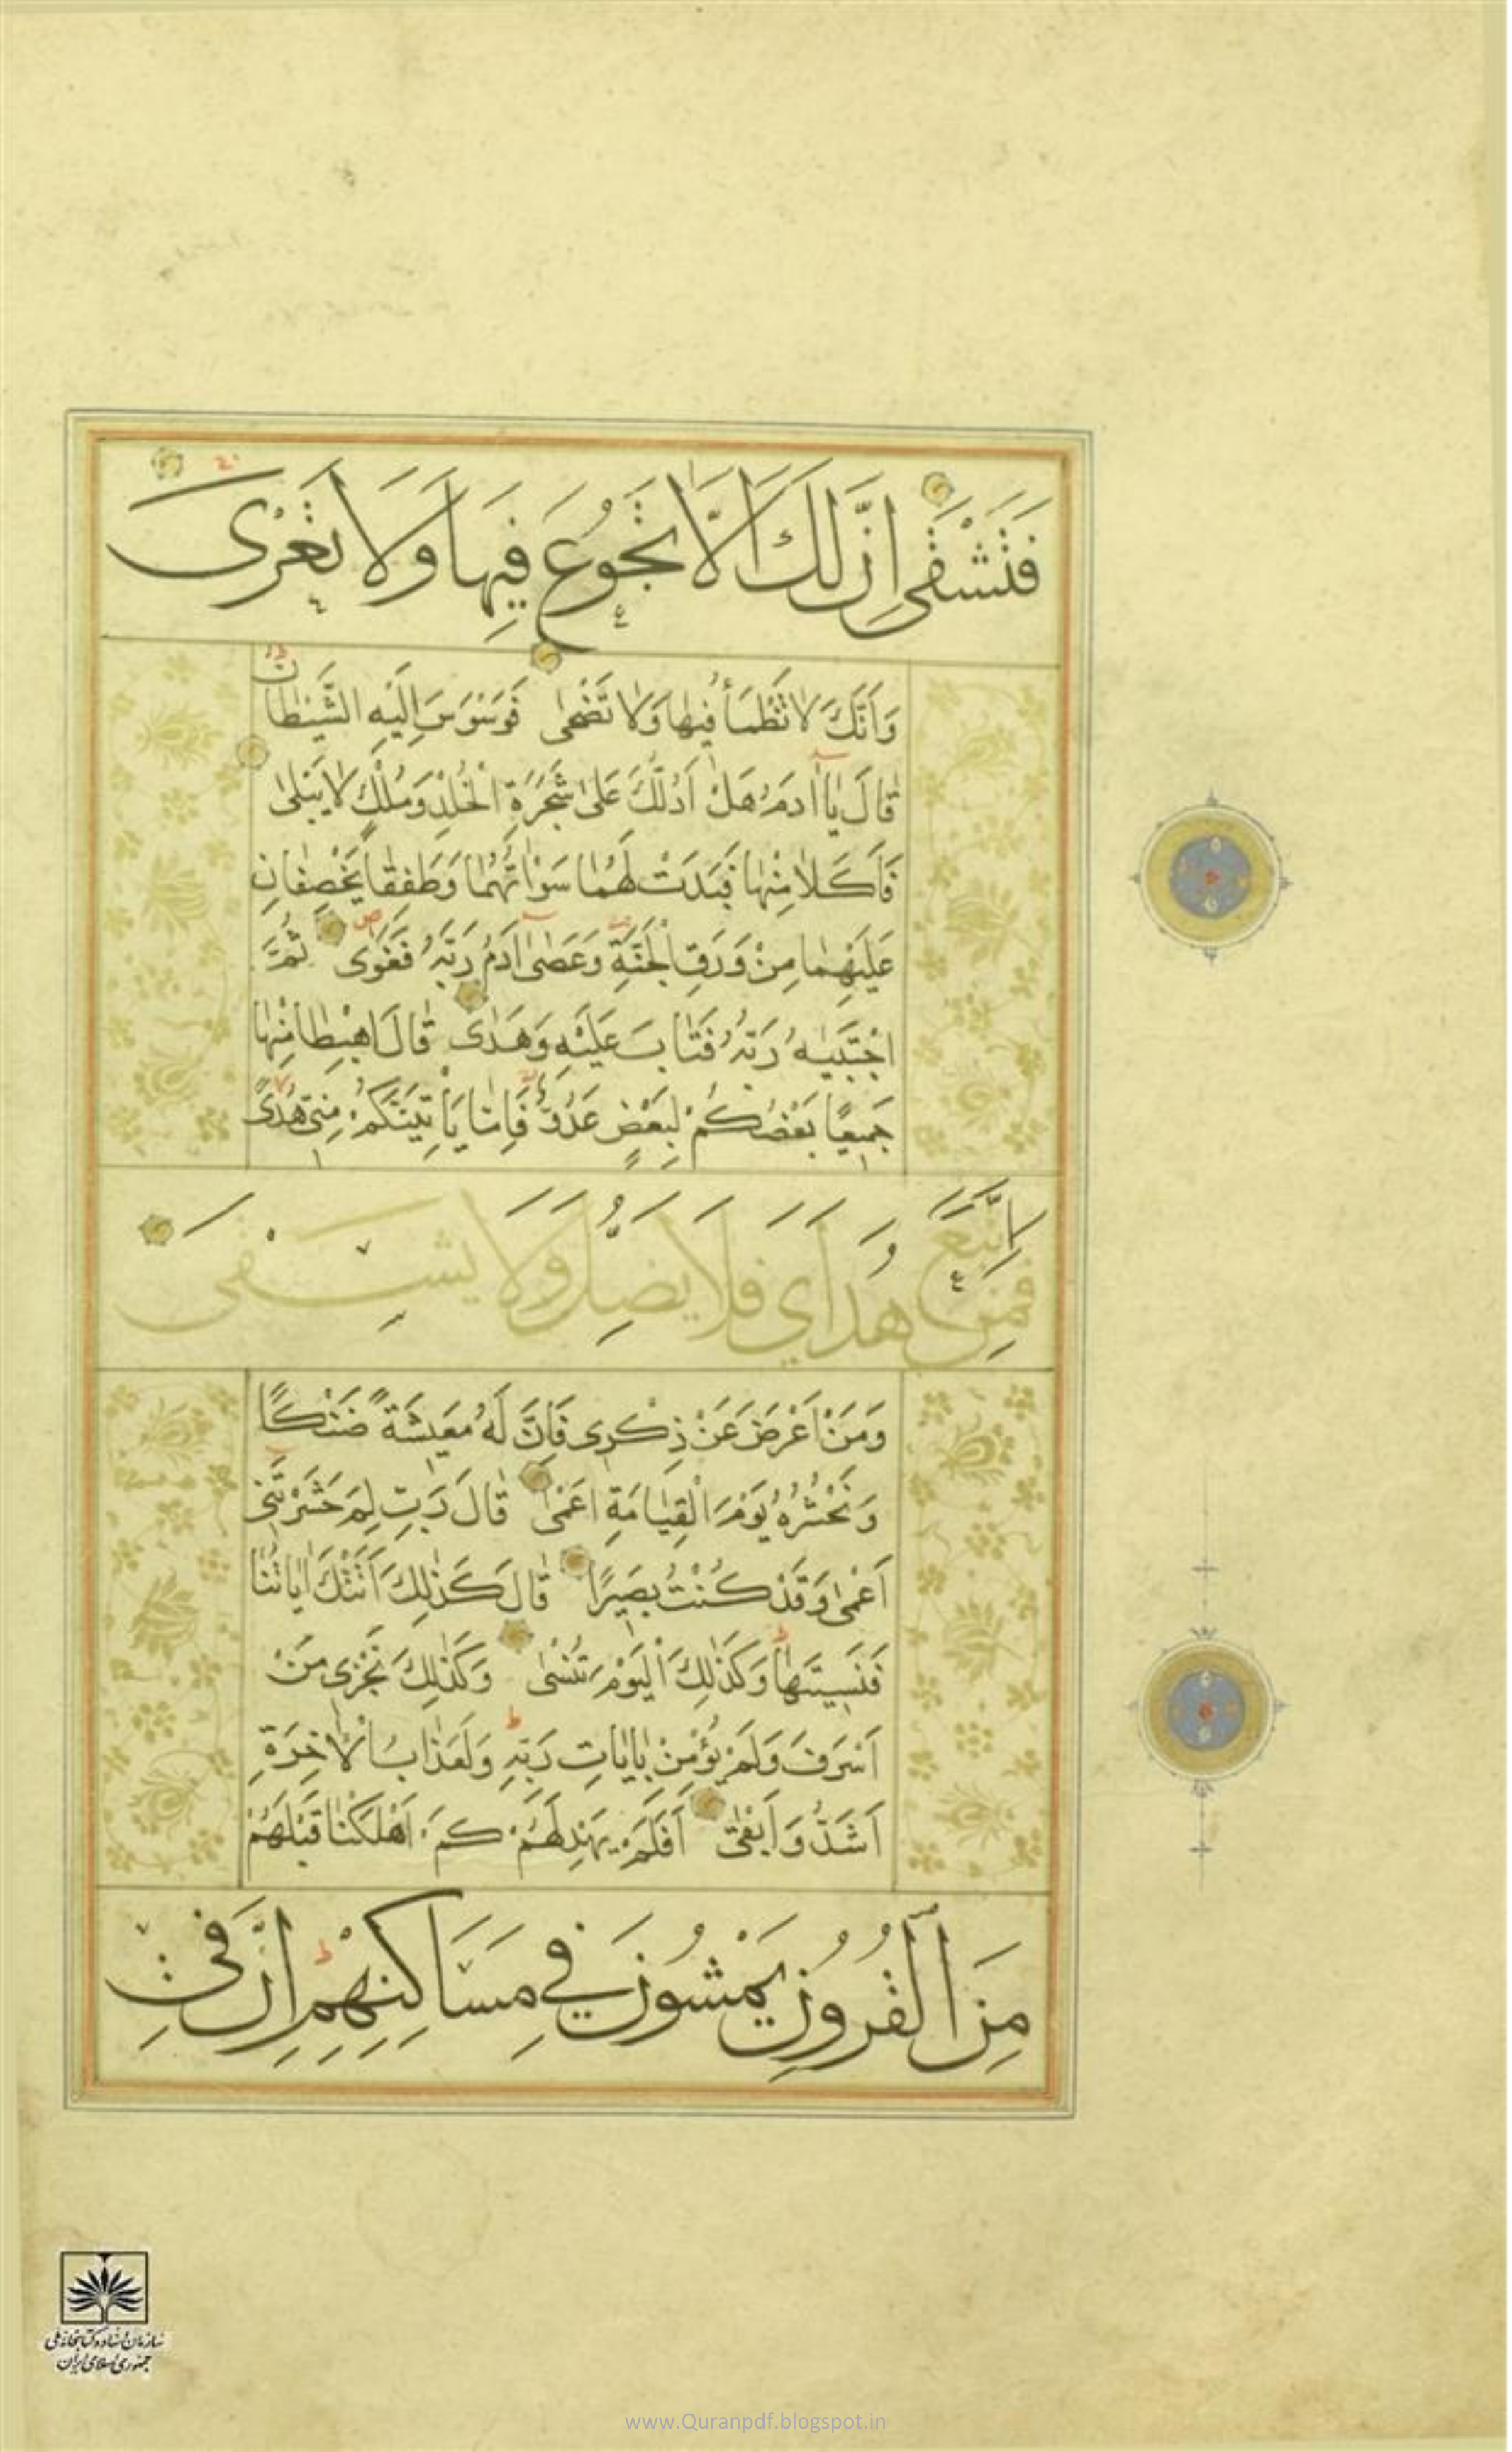 فَتَشْقٰى اِنَّ لَكَ اَلَّا تَجُوعَ فِيهَا وَلَا تَعْرٰى
وَاَنَّكَ لَا تَظْمَأُ فِيهَا وَلَا تَضْحٰى فَوَسْوَسَ اِلَيْهِ الشَّيْطَانُ
قَالَ يَا اٰدَمُ هَلْ اَدُلُّكَ عَلٰى شَجَرَةِ الْخُلْدِ وَمُلْكٍ لَا يَبْلٰى
فَاَكَلَا مِنْهَا فَبَدَتْ لَهُمَا سَوْاٰتُهُمَا وَطَفِقَا يَخْصِفَانِ
عَلَيْهِمَا مِنْ وَرَقِ الْجَنَّةِ وَعَصٰى اٰدَمُ رَبَّهُ فَغَوٰى ثُمَّ
اجْتَبٰيهُ رَبُّهُ فَتَابَ عَلَيْهِ وَهَدٰى قَالَ اهْبِطَا مِنْهَا
جَمِيعًا بَعْضُكُمْ لِبَعْضٍ عَدُوٌّ فَاِمَّا يَأْتِيَنَّكُمْ مِنِّى هُدًى
فَمَنِ اتَّبَعَ هُدَايَ فَلَا يَضِلُّ وَلَا يَشْقٰى
وَمَنْ اَعْرَضَ عَنْ ذِكْرِى فَاِنَّ لَهُ مَعِيشَةً ضَنْكًا
وَنَحْشُرُهُ يَوْمَ الْقِيَامَةِ اَعْمٰى قَالَ رَبِّ لِمَ حَشَرْتَنِى
اَعْمٰى وَقَدْ كُنْتُ بَصِيرًا قَالَ كَذٰلِكَ اَتَتْكَ اٰيَاتُنَا
فَنَسِيتَهَا وَكَذٰلِكَ الْيَوْمَ تُنْسٰى وَكَذٰلِكَ نَجْزِى مَنْ
اَسْرَفَ وَلَمْ يُؤْمِنْ بِاٰيَاتِ رَبِّهِ وَلَعَذَابُ الْاٰخِرَةِ
اَشَدُّ وَاَبْقٰى اَفَلَمْ يَهْدِ لَهُمْ كَمْ اَهْلَكْنَا قَبْلَهُمْ
مِنَ الْقُرُونِ يَمْشُونَ فِي مَسَاكِنِهِمْ اِنَّ فِي
سازمان اسناد و کتابخانه ملی
جمهوری اسلامی ایران
www.Quranpdf.blogspot.in